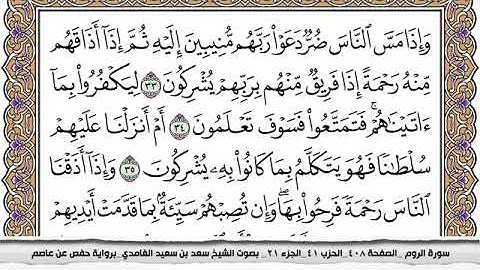 وَإِذَا مَسَّ ٱلنَّاسَ ضُرٌّ دَعَوْا۟ رَبَّهُم مُّنِيبِينَ إِلَيْهِ ثُمَّ إِذَآ أَذَاقَهُم
مِّنْهُ رَحْمَةً إِذَا فَرِيقٌ مِّنْهُم بِرَبِّهِمْ يُشْرِكُونَ ٣٣ لِيَكْفُرُوا۟ بِمَآ
ءَاتَيْنَٰهُمْ ۚ فَتَمَتَّعُوا۟ فَسَوْفَ تَعْلَمُونَ ٣٤ أَمْ أَنزَلْنَا عَلَيْهِمْ
سُلْطَٰنًا فَهُوَ يَتَكَلَّمُ بِمَا كَانُوا۟ بِهِۦ يُشْرِكُونَ ٣٥ وَإِذَآ أَذَقْنَا
ٱلنَّاسَ رَحْمَةً فَرِحُوا۟ بِهَا ۖ وَإِن تُصِبْهُمْ سَيِّئَةٌۢ بِمَا قَدَّمَتْ أَيْدِيهِمْ
سورة الروم _الصفحة ٤٠٨_ الحزب ٤١_ الجزء ٢١_ بصوت الشيخ سعد بن سعيد الغامدي_برواية حفص عن عاصم